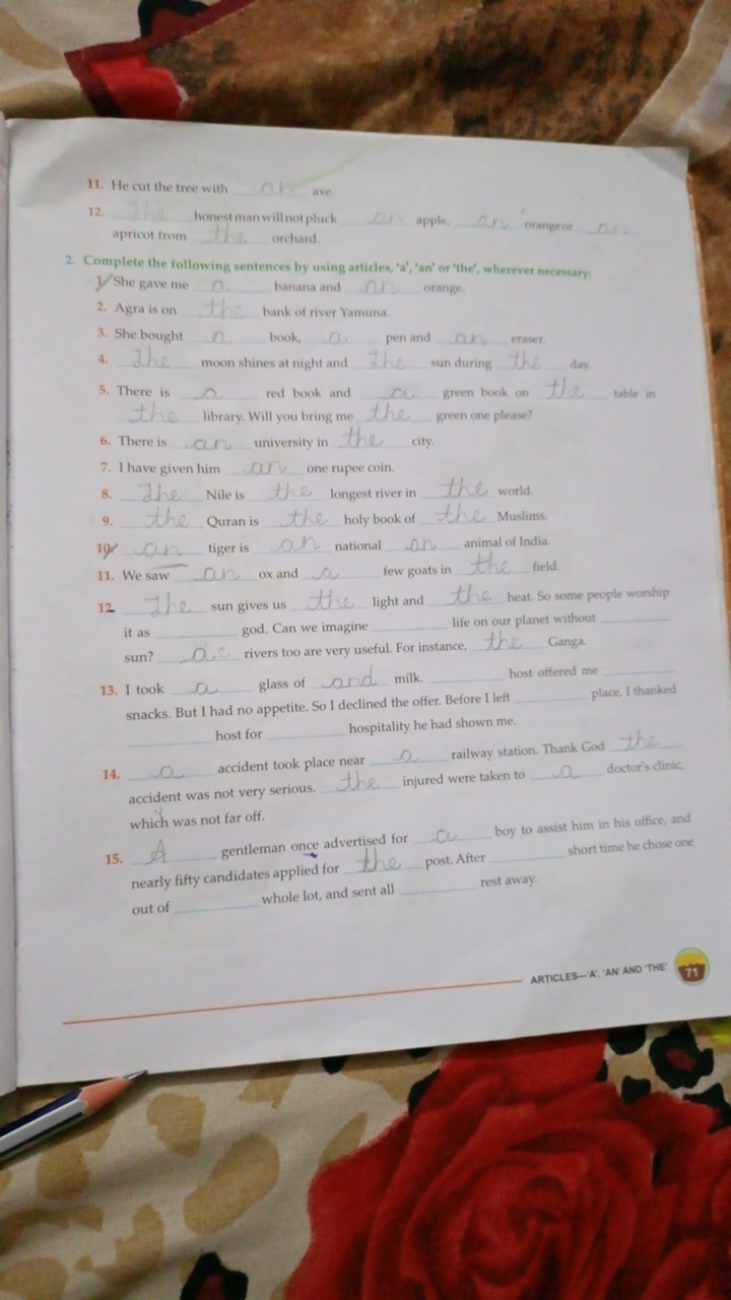 11. He cut the tree with an axe.
12. The honest man will not pluck an apple, an orange or an
apricot from the orchard.
2. Complete the following sentences by using articles, 'a', 'an' or 'the', wherever necessary:
1. She gave me a banana and an orange.
2. Agra is on the bank of river Yamuna.
3. She bought a book, a pen and an eraser.
4. The moon shines at night and The sun during the day.
5. There is a red book and a green book on the table in
the library. Will you bring me the green one please?
6. There is an university in the city.
7. I have given him an one rupee coin.
8. The Nile is the longest river in the world.
9. the Quran is the holy book of the Muslims.
10. an tiger is an national an animal of India.
11. We saw an ox and a few goats in the field.
12. The sun gives us the light and the heat. So some people worship
it as ______ god. Can we imagine ______ life on our planet without ______
sun? rivers too are very useful. For instance, the Ganga.
13. I took a glass of and milk. ______ host offered me ______
snacks. But I had no appetite. So I declined the offer. Before I left ______ place, I thanked
______ host for ______ hospitality he had shown me.
14. a accident took place near a railway station. Thank God the
accident was not very serious. the injured were taken to a doctor's clinic,
which was not far off.
15. A gentleman once advertised for a boy to assist him in his office, and
nearly fifty candidates applied for the post. After ______ short time he chose one
out of ______ whole lot, and sent all ______ rest away.
ARTICLES—'A', 'AN' AND 'THE' 71